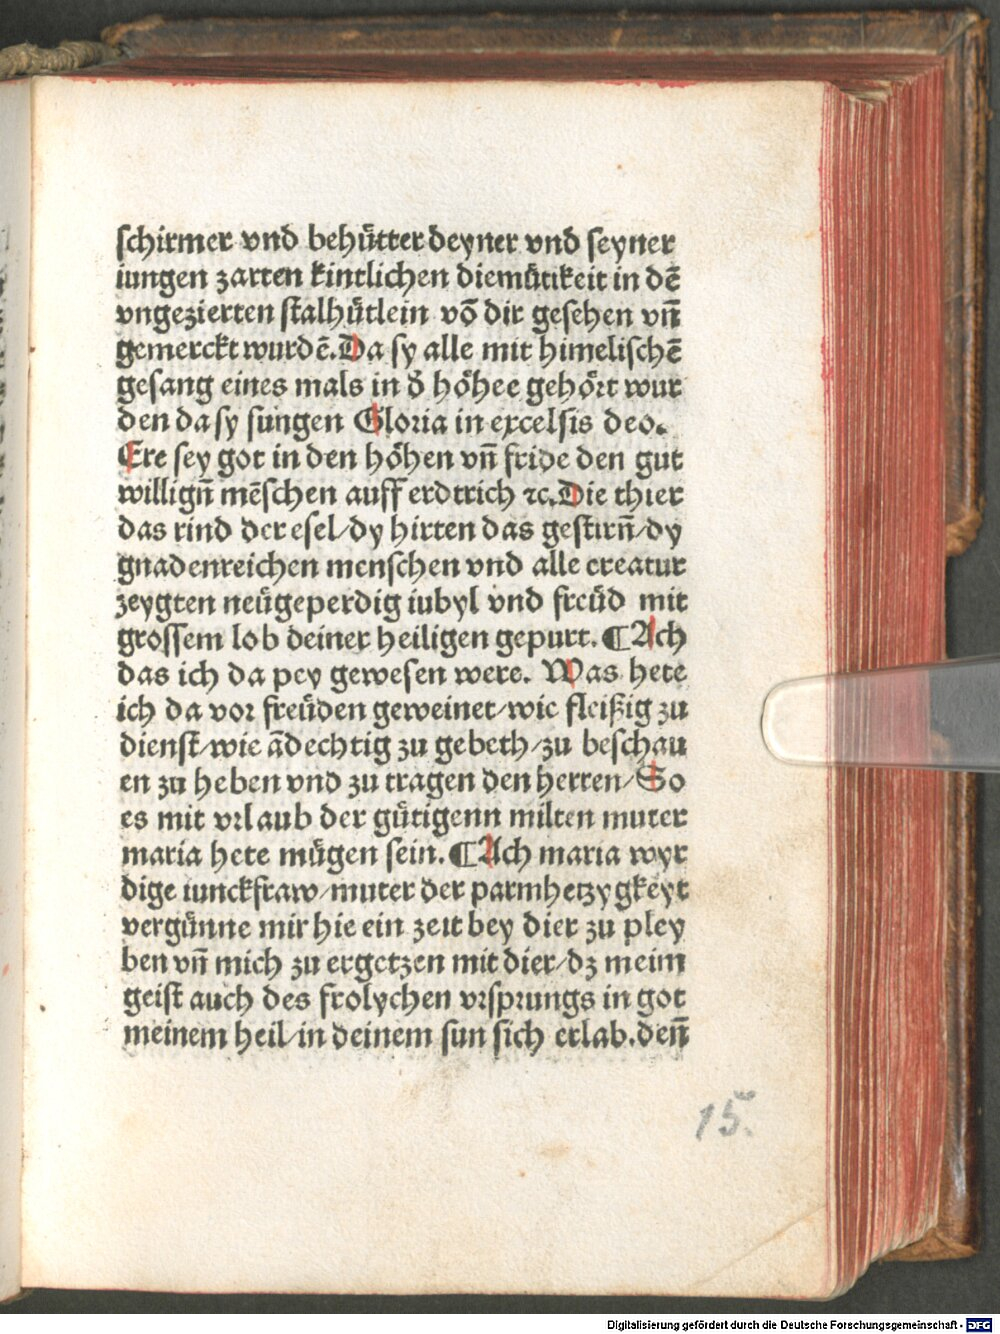 schirmer vnd behuͤtter deyner vnd seyner
iungen zarten kintlichen diemuͤtikeit in dē
vngezierten stalhuͤtlein vō dir gesehen vn̄
gemerckt wurdē. Da sy alle mit himelischē
gesang eines mals in d̕ hoͤhee gehoͤrt wur
den da sy sungen Gloria in excelsis deo.
Ere sey got in den hoͤhen vn̄ fride den gut
willign̄ mēschen auff erdtrich ⁊c. Die thier
das rind der esel/dy hirten das gestirn̄/dy
gnadenreichen menschen vnd alle creatur
zeygten neuͤgeperdig iubyl vnd freuͤd mit
grossem lob deiner heiligen gepurt. ¶ Ach
das ich da pey gewesen were. Was hete
ich da vor freuͤden geweinet/wie fleißig zu
dienst/wie ādechtig zu gebeth/zu beschau
en zu heben vnd zu tragen den herren/So
es mit vrlaub der guͤtigenn milten muter
maria hete muͤgen sein. ¶ Ach maria wyr
dige iunckfraw/muter der parmhetzygkeyt
verguͤnne mir hie ein zeit bey dier zu pley
ben vn̄ mich zu ergetzen mit dier/dz meim
geist auch des frolychen vrsprungs in got
meinem heil/in deinem sun sich erlab. den̄
15.
Digitalisierung gefördert durch die Deutsche Forschungsgemeinschaft - DFG